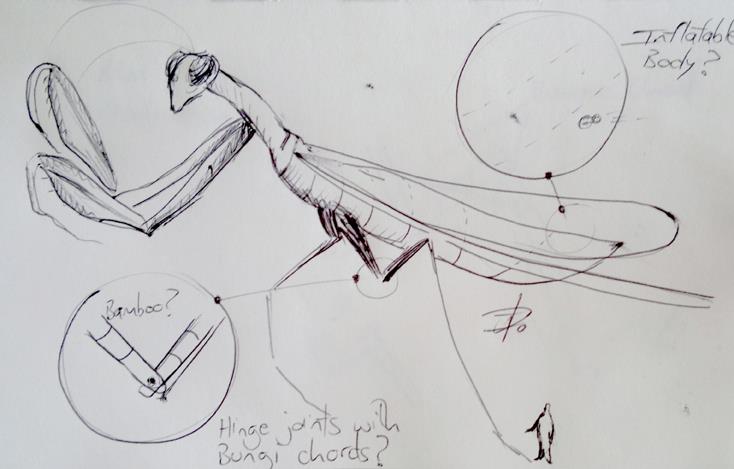 Inflatable
Body?
Bamboo?
Hinge joints with
Bungi chords?